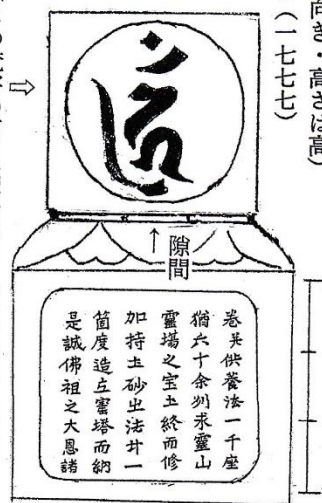 向き・高さは高)
(一七七七)
隙間
巻并供養法一千座
猶六十余州求靈山
靈場之宝土終而修
加持土砂出法廿一
箇度造立塔而納
是誠佛祖之大恩諸